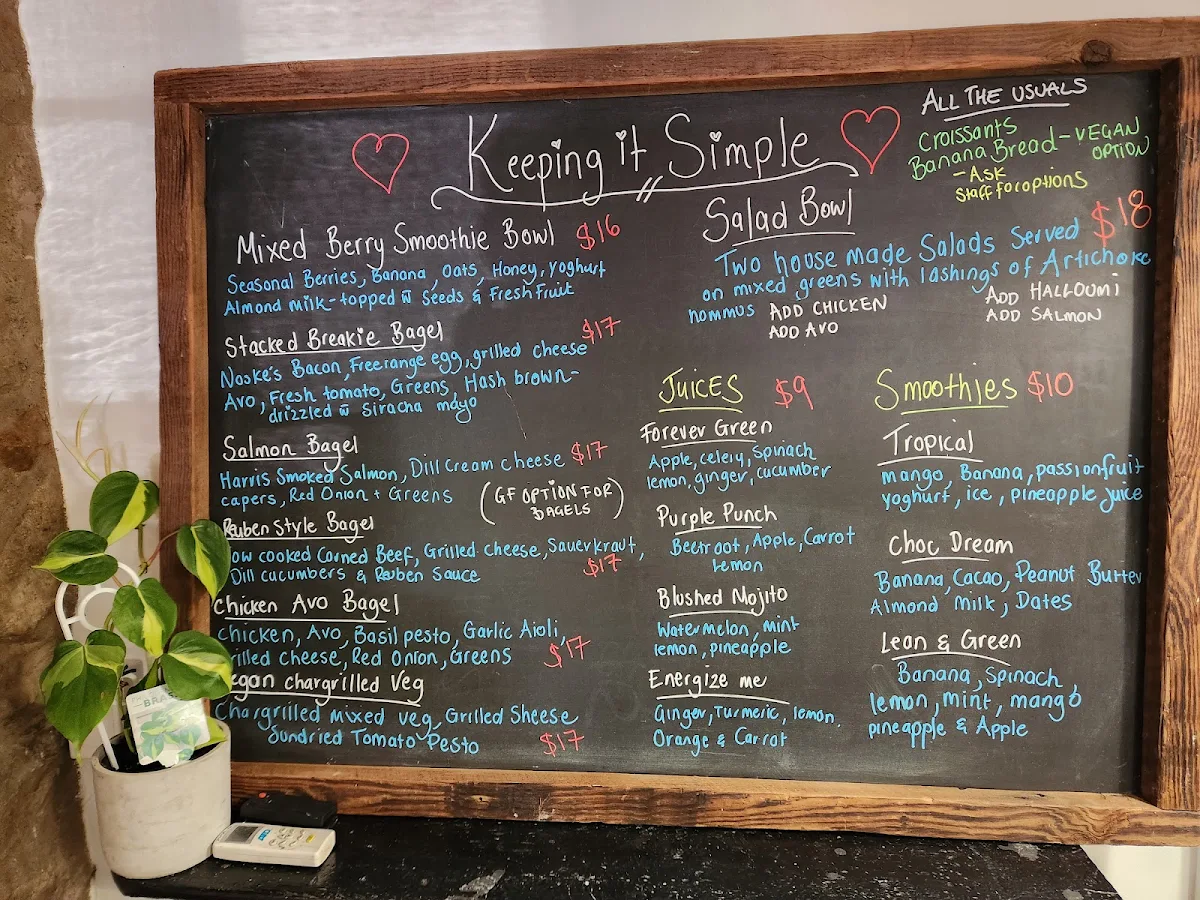 Keeping it Simple
ALL THE USUALS
Croissants
Banana Bread - VEGAN
OPTION
- ASK
Staff for options
Mixed Berry Smoothie Bowl $16
Seasonal Berries, Banana, Oats, Honey, Yoghurt
Almond milk - topped w Seeds & Fresh Fruit
Stacked Breakie Bagel $17
Noske's Bacon, Freerange egg, grilled cheese
Avo, Fresh tomato, Greens, Hash brown -
drizzled w Siracha mayo
Salmon Bagel
Harris Smoked Salmon, Dill Cream cheese $17
capers, Red Onion + Greens
(GF OPTION FOR
BAGELS)
Reuben Style Bagel
low cooked Corned Beef, Grilled cheese, Sauerkraut,
Dill cucumbers & Reuben Sauce $17
Chicken Avo Bagel
Chicken, Avo, Basil pesto, Garlic Aioli,
rilled Cheese, Red Onion, Greens $17
egan chargrilled Veg
Chargrilled mixed veg, Grilled Sheese
Sundried Tomato Pesto $17
Salad Bowl $18
Two house made Salads Served
on mixed greens with lashings of Artichoke
hommus ADD CHICKEN
ADD AVO
ADD HALLOUMI
ADD SALMON
Juices $9
Forever Green
Apple, celery, Spinach
lemon, ginger, cucumber
Purple Punch
Beetroot, Apple, Carrot
Lemon
Blushed Mojito
Watermelon, Mint
lemon, pineapple
Energize me
Ginger, Turmeric, lemon,
Orange & Carrot
Smoothies $10
Tropical
mango, Banana, passionfruit
yoghurt, ice, pineapple juice
Choc Dream
Banana, Cacao, Peanut Butter
Almond Milk, Dates
Lean & Green
Banana, Spinach
lemon, mint, mango
pineapple & Apple
BRA